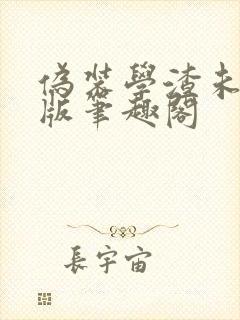 偽裝學渣未
版筆趣閣
長宇宙